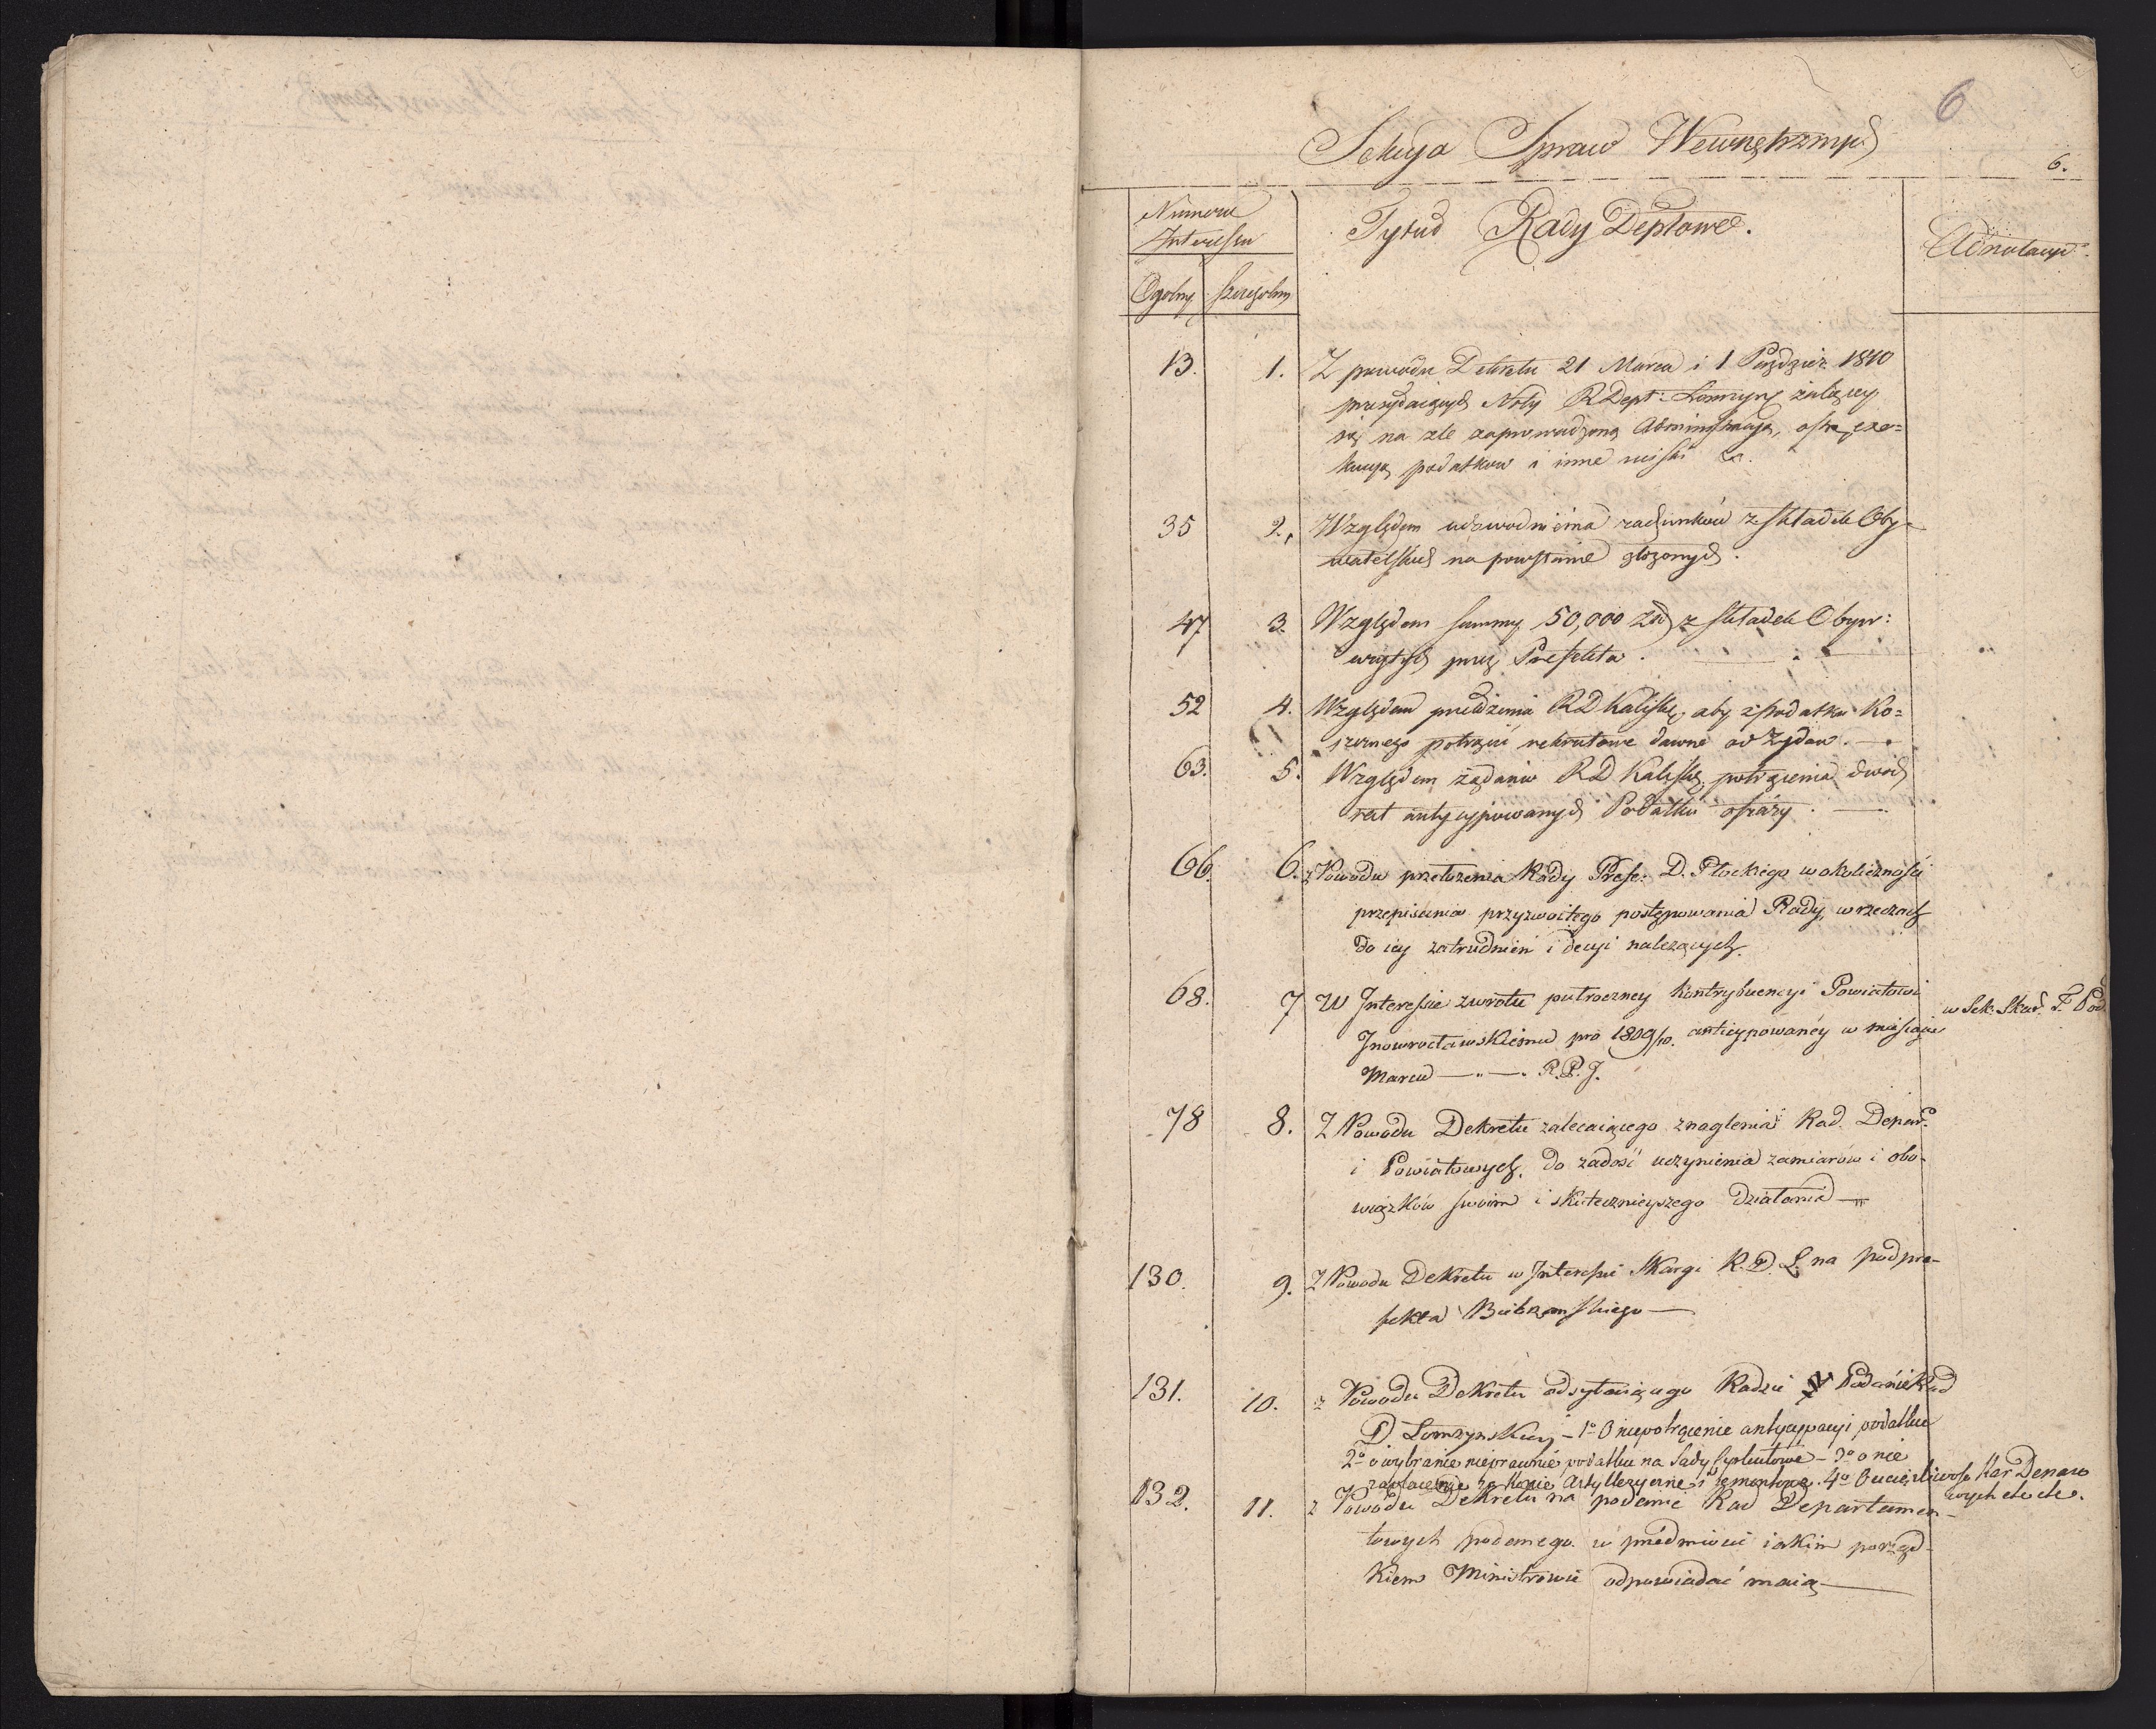 6
Sekcya Spraw Wewnętrznych
6.
Numera
Interessu
Tytuł Rady Deptowe.
Adnotacye.
Ogolny szczegolny
13. 1. Z powodu Dekretu 21 Marca i 1 Paździer. 1810
przesyłaiących Noty R Dept: Łomżyn żalącey
się na złe zaprowadzoną Administracyą, ostrą exe=
kucyą podatkow i inne uciski &c.
35 2. Względem udowodnienia rachunków z składek Oby=
watelskich na powstanie złożonych.
47 3. Względem summy 50,000 Zł z składek Obyw:
wziętych przez Prefekta.
52 4. Względem przełożenia R D Kaliskiey, aby z podatku Ko=
szernego potrącić rekrutowe dawne od Żydow.
63. 5. Względem żądania R D Kaliskiey potrącenia dwóch
rat antycypowanych Podatku ofiary.
66. 6. z Powodu przełożenia Rady Pref: D. Płockiego w okoliczności
przepisania przyzwoitego postępowania Rady, w rzeczach
do iey zatrudnień i decyi należących.
68. 7 W Interessie zwrotu putroczney kontrybucyi Powiatowi
w Sek: Skar. T. Pod.
Inowrocławskiemu pro 1809/10. anticypowanéy w miesiącu
Marcu —„—. R. P. J.
78 8. Z Powodu Dekretu zalecaiącego znaglenia Rad Depar.
i Powiatowych. do zadość uczynienia zamiarów i obo-
wiązków swoim i skutecznieyszego działania —
130. 9. Z Powodu Dekretu w Interessie Skargi R. D. Ł. na podpre-
fekta Biebrzanskiego —
131. 10. z Powodu Dekretu odsyłaiącego Radzie Podanie Rad
D Łomzynskiey – 1º O niepotrącenie antycypacyi podatku
2º o wybranie nieprawnie podatku na Sądy – 3º o nie
zapłacenie za konie Artylleryczne i remontowe. 4º O uciążliwość Kar Denaro
wych etc etc.
132. 11. z Powodu Dekretu na podanie Rad Departamen-
towych podanego. w przedmiocie iakim porząd-
kiem Ministrowie odpowiadać maią —